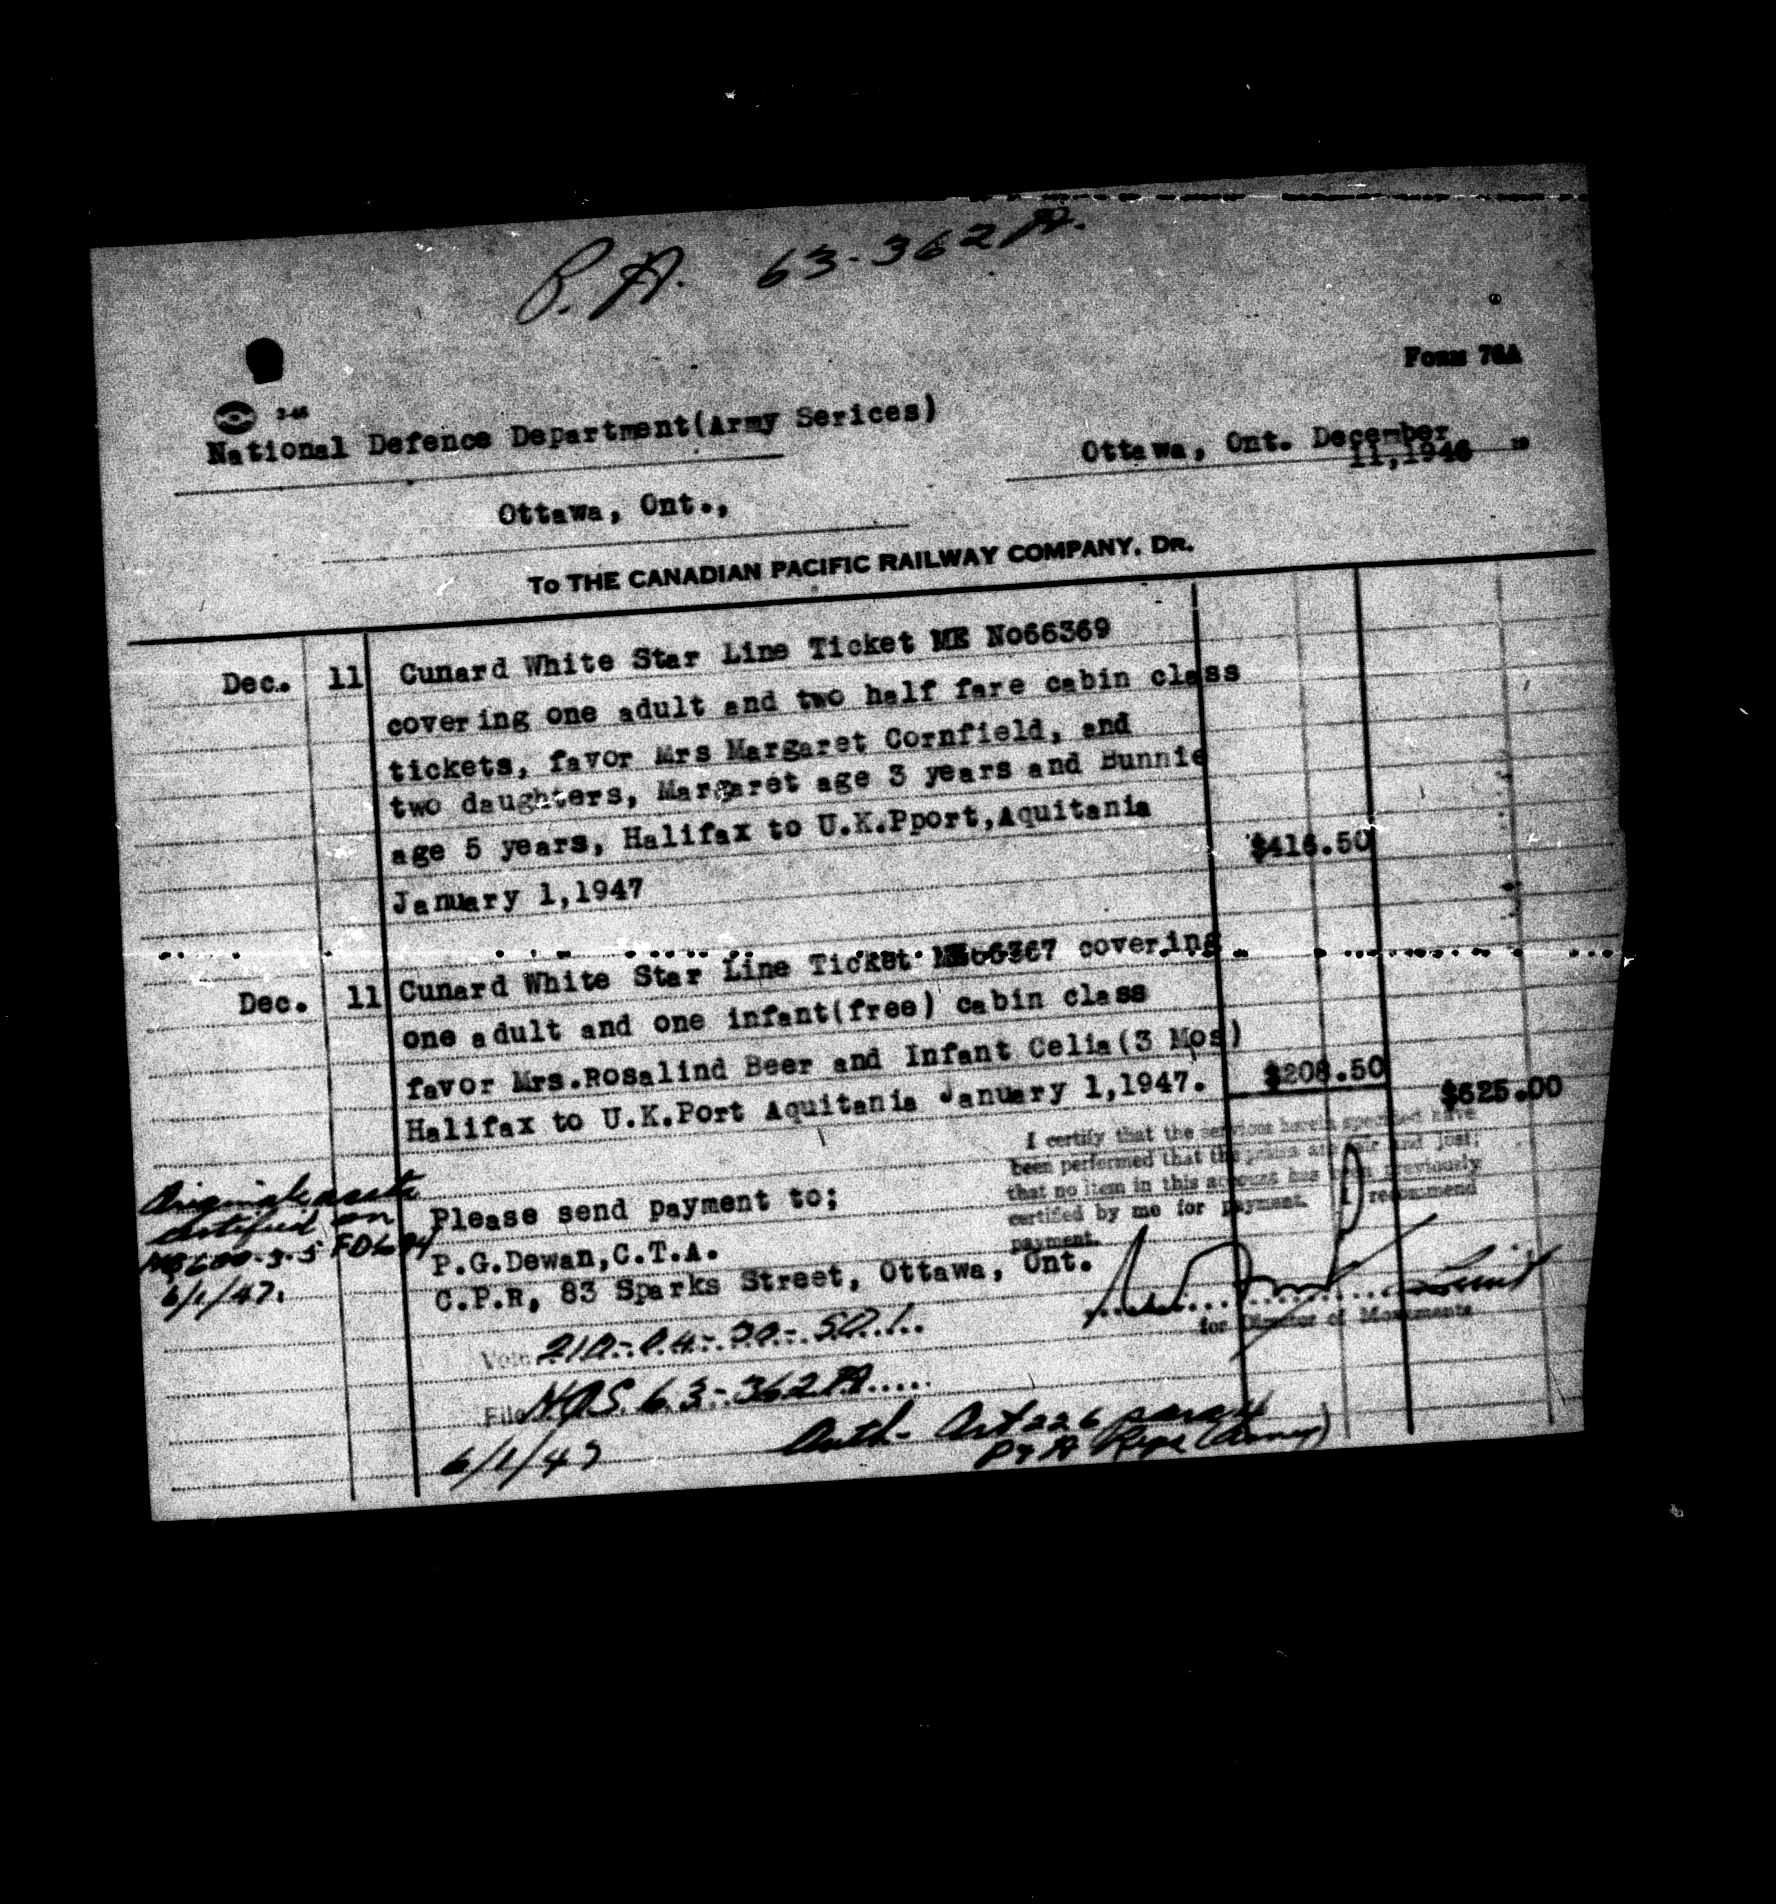 P.A. 63-362A.
Form 76A
2-46
National Defence Department(Army Serices)
Ottawa, Ont. December
11,1946 19
Ottawa, Ont.,
To THE CANADIAN PACIFIC RAILWAY COMPANY, DR.
Dec. 11 Cunard White Star Line Ticket ME No66369
covering one adult and two half fare cabin class
tickets, favor Mrs Margaret Cornfield, and
two daughters, Margaret age 3 years and Bunnie
age 5 years, Halifax to U.K.Pport,Aquitania $416.50
January 1,1947
Dec. 11 Cunard White Star Line Ticket ME66367 covering
one adult and one infant(free) cabin class
favor Mrs.Rosalind Beer and Infant Celia(3 Mos)
Halifax to U.K.Port Aquitania January 1,1947. $208.50 $625.00
I certify that the services herein specified have
been performed that the prices are fair and just;
that no item in this account has been previously
certified by me for payment. I recommend
payment.
for Director of Movements
Original acct
certified on
6/1/47.
Please send payment to;
P.G.Dewan,C.T.A.
C.P.R, 83 Sparks Street, Ottawa, Ont.
Vote
File HQS. 63-362A
6/1/47
Auth- Art 226 para
P & A Regs (Army)